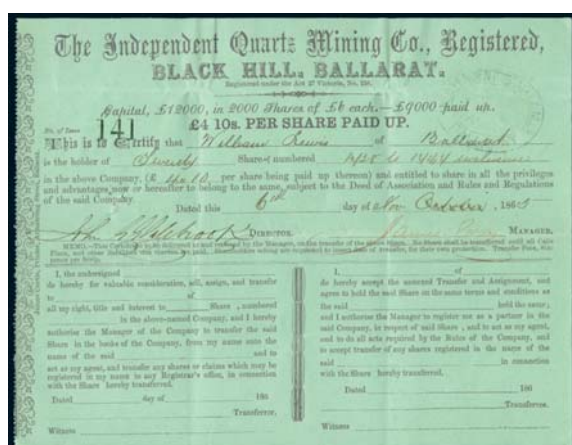 The Independent Quartz Mining Co., Registered,
BLACK HILL. BALLARAT.
Registered under the Act 27 Victoria, No. 228.
Capital, £12000, in 2000 Shares of £6 each—£9000 paid up.
No. of Issue
141
£4 10s. PER SHARE PAID UP.
This is to Certify that William Lewis of Ballarat
is the holder of Twenty Shares numbered to 1464 inclusive
in the above Company, (£ 4 " 10 per share being paid up thereon) and entitled to share in all the privileges
and advantages now or hereafter to belong to the same, subject to the Deed of Association and Rules and Regulations
of the said Company. Dated this 6th day of Nov October , 186
John DIRECTOR. MANAGER.
MEMO.—This Certificate to be delivered to and retained by the Manager, on the transfer of the above Share. No Share shall be transferred until all Calls
I, the undersigned
do hereby for valuable consideration, sell, assign, and transfer
to of
all my right, title and interest to Share , numbered
in the above-named Company, and I hereby
authorise the Manager of the Company to transfer the said
Share in the books of the Company, from my name unto the
name of the said and to
act as my agent, and transfer any shares or claims which may be
registered in my name in any Registrar's office, in connection
with the Share hereby transferred.
Dated day of 186
Transferror.
Witness
I, of
do hereby accept the annexed Transfer and Assignment, and
agree to hold the said Share on the same terms and conditions as
the said held the same;
and I authorise the Manager to register me as a partner in the
said Company, in respect of said Share , and to act as my agent,
and to do all acts required by the Rules of the Company, and
to accept transfer of any shares registered in the name of the
said in connection
with the Share hereby transferred.
Dated 186
Transferree.
Witness